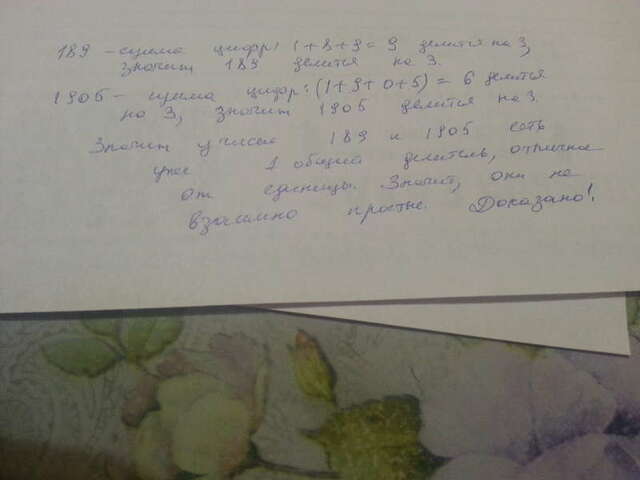 189 - сумма цифр: 1+8+9 = 9 делится на 3,
значит 189 делится на 3.
1905 - сумма цифр: (1+9+0+5) = 6 делится
на 3, значит 1905 делится на 3.
Значит у чисел 189 и 1905 есть
уже 1 общий делитель, отличное
от единицы. Значит, они не
взаимно простые. Доказано!